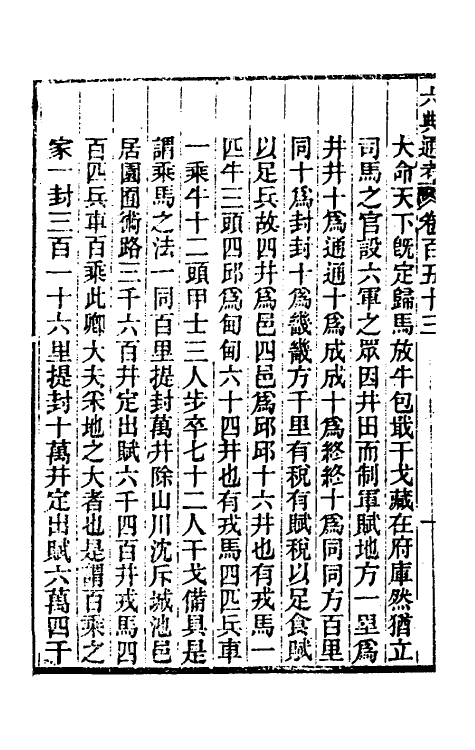 六典通考 卷百五十三 一
大命天下既定歸馬放牛包戢干戈藏在府庫然猶立
司馬之官設六軍之眾因井田而制軍賦地方一里爲
井井十爲通通十爲成成十爲終終十爲同同方百里
同十爲封封十爲畿畿方千里有稅有賦稅以足食賦
以足兵故四井爲邑四邑爲邱邱十六井也有戎馬一
匹牛三頭四邱爲甸甸六十四井也有戎馬四匹兵車
一乘牛十二頭甲士三人步卒七十二人干戈備具是
謂乘馬之法一同百里提封萬井除山川沈斥城池邑
居園囿術路三千六百井定出賦六千四百井戎馬四
百匹兵車百乘此卿大夫采地之大者也是謂百乘之
家一封三百一十六里提封十萬井定出賦六萬四千